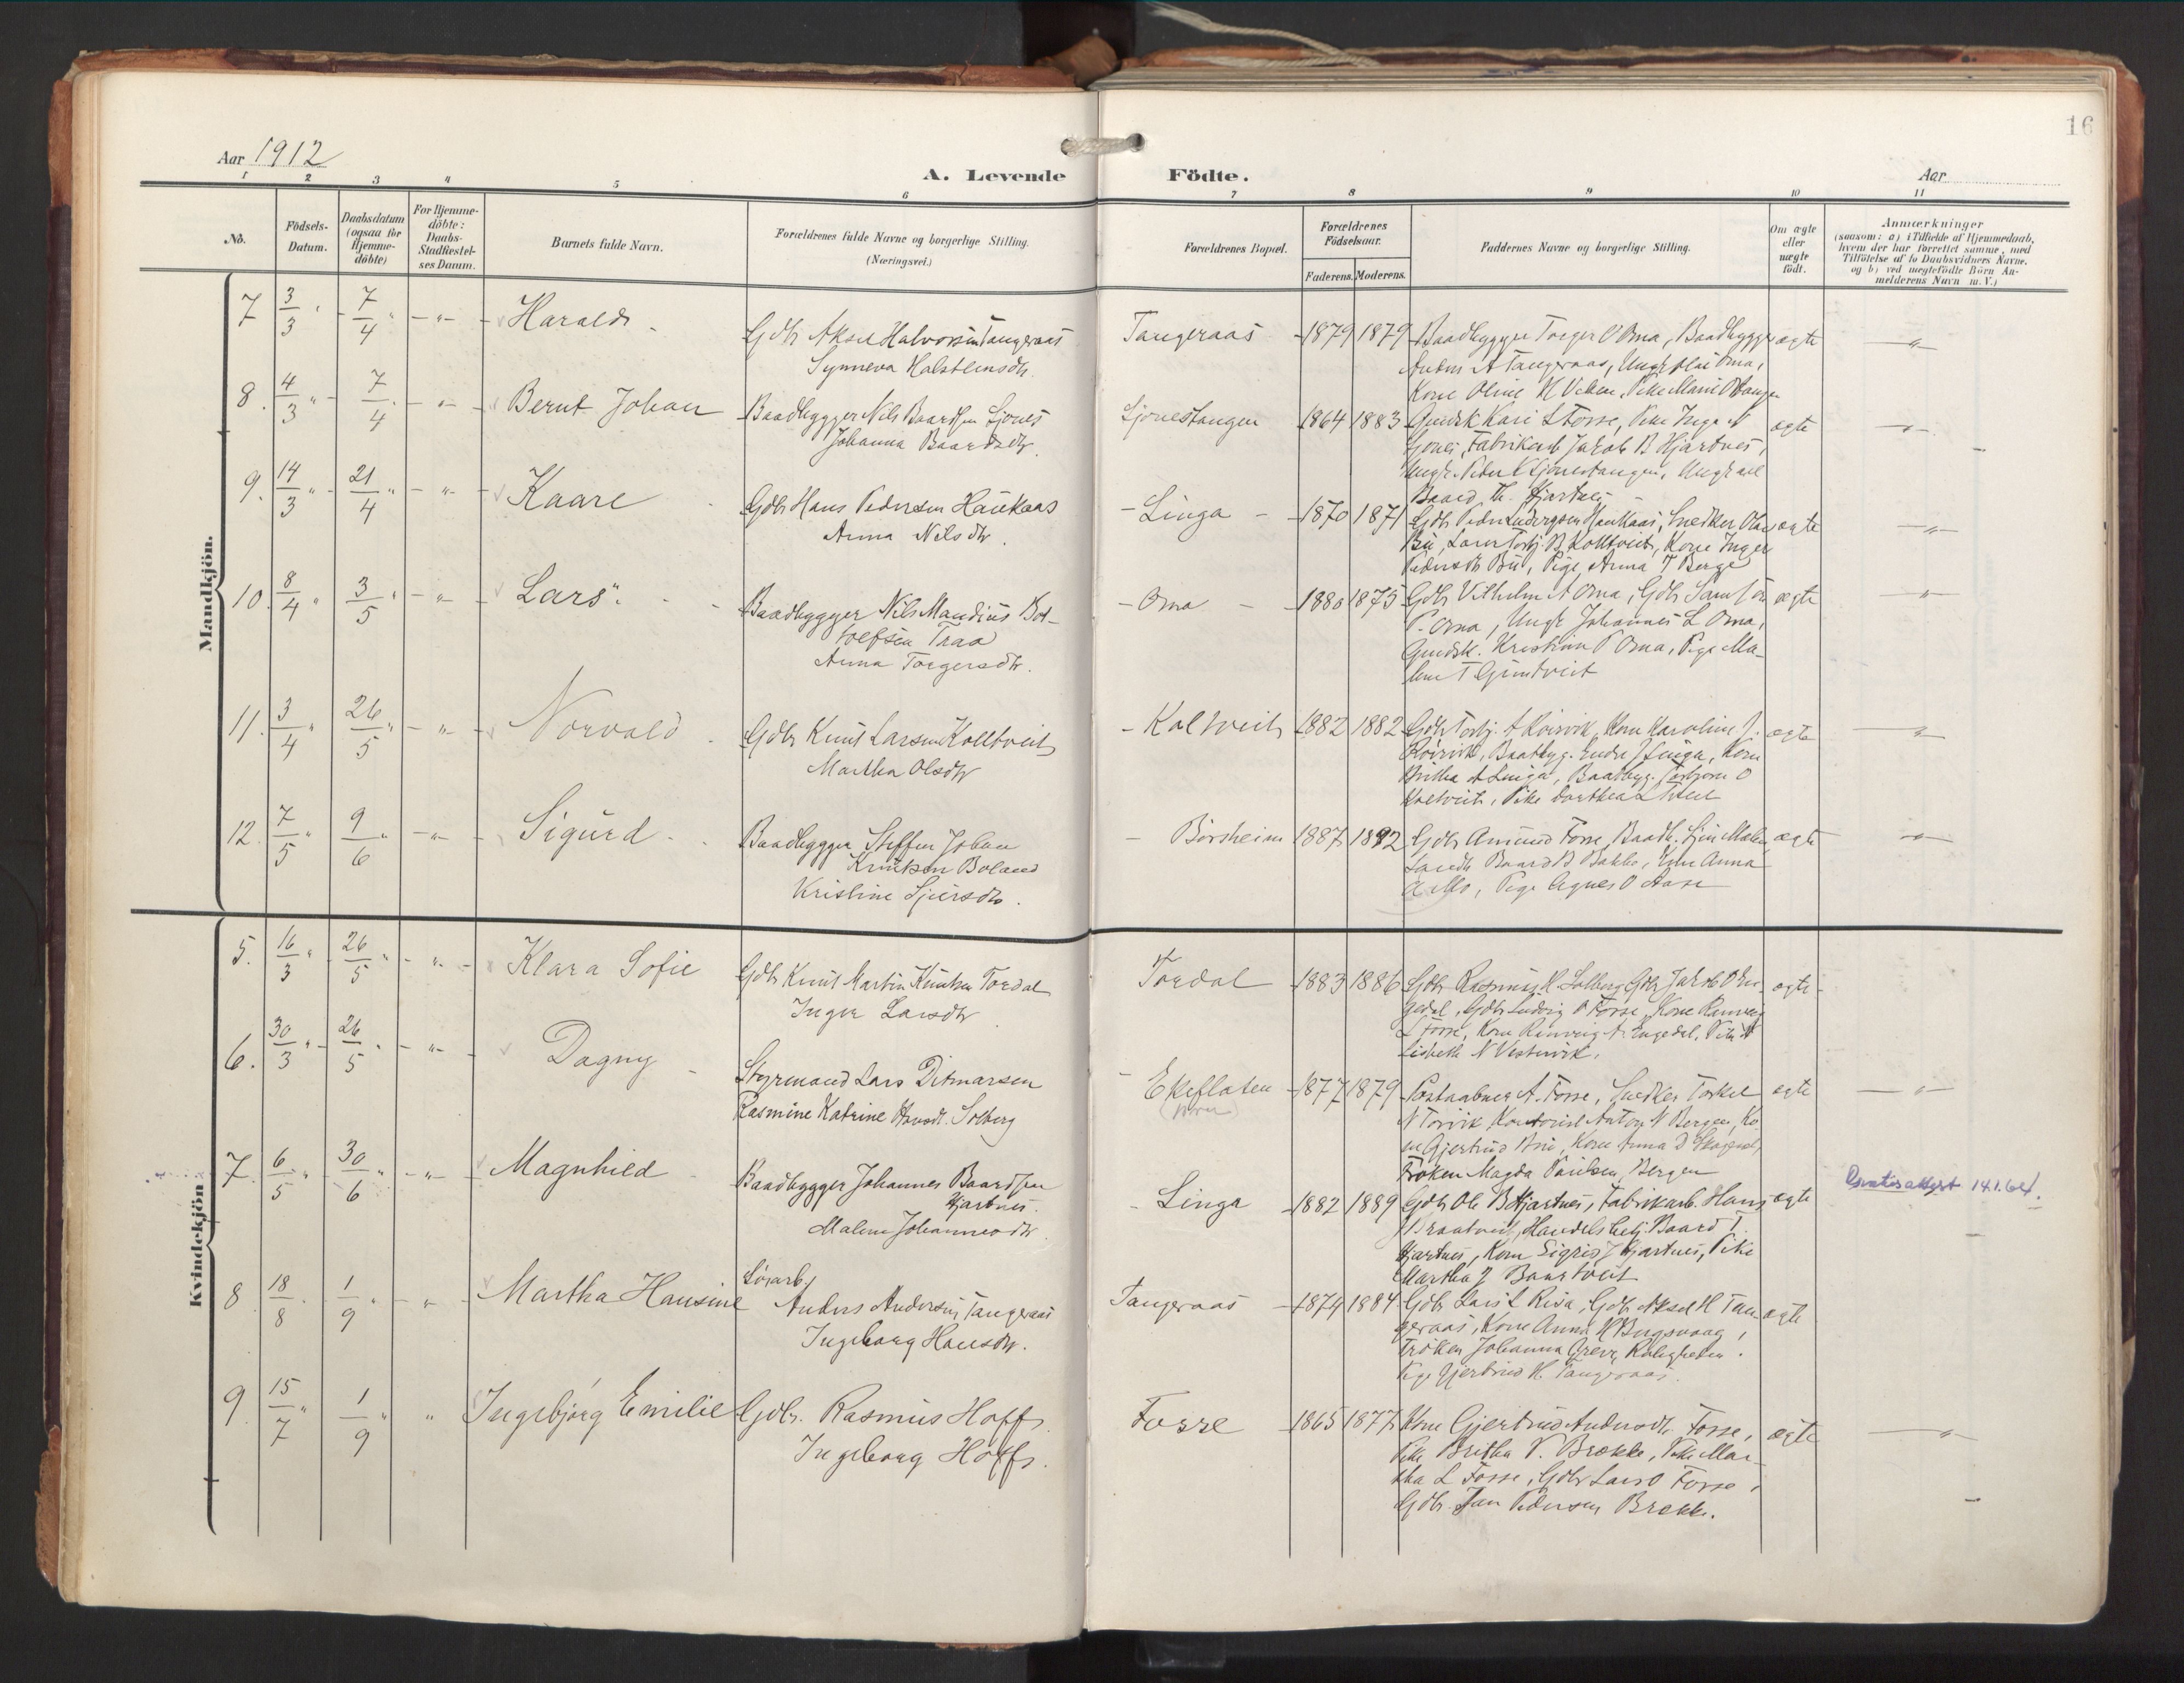 16
Aar 1912
A. Levende Födte.
Aar
1 2 3 4 5 6 7 8 9 10 11
No.
Födsels-Datum.
Daabsdatum (ogsaa for Hjemme-döbte)
For Hjemme-döbte: Daabs-Stadfæstel-ses Datum.
Barnets fulde Navn.
Forældrenes fulde Navne og borgerlige Stilling.
(Næringsvei.)
Forældrenes Bopæl.
Forældrenes Födselsaar.
Faderens. Moderens.
Faddernes Navne og borgerlige Stilling.
Om ægte eller uægte födt.
Anmærkninger
(saasom: a) i Tilfælde af Hjemmedaab,
hvem der har forrettet samme, med
Tilföielse af to Daabsvidners Navne,
og b) ved uægtefödte Börn An-
melderens Navn m. V.)
Mandkjön.
7 3/3 " 7/4 " - " - Harald
Gdbr Aksel Halvorsen Tangeraas
Synneva Halstensdtr.
Tangeraas 1879 1879
Baadbygger Torger O Oma, Baadbygger
Anders A Tangeraas, Ungk Olai Oma,
Kone Oline H Viken, Pike Marie O Tanger
ægte - " -
8. 4/3 " 7/4 " - " - Bernt Johan
Baadbygger Nils Baardsen Sjones
Johanna Baardsdtr.
Sjonestangen 1864 1883
Gmdsk Kari L Fosse, Pike Inga N
Sjones, Fabrikarb Jakob B Hjartnes,
Ungk. Peder K Sjonestangen, Ungkarl
Baard Th. Hjartnes
ægte - " -
9. 14/3 " 21/4 " - " - Kaare
Gdbr Hans Pedersen Haukaas
Anna Nilsdtr.
Linga 1870 1871
Gdbr Peder Ludvigsen Haukaas, Snedker Olav
Bu, Lærer Torbj. B Koltveit, Kone Inger
Pedersdtr Bu, Pige Anna T Berge
ægte - " -
10. 8/4 " 3/5 " - " - Lars
Baadbygger Nils Mandius Bot-
tolfsen Traa
Anna Torgersdtr.
Oma 1880 1875
Gdbr Vilhelm A Oma, Gdbr Samson
P. Oma, Ungk Johannes L Oma,
Gmdsk. Kristine P Oma, Pige Ma-
lene T Gjuntveit
ægte - " -
11. 3/4 " 26/5 " - " - Norvald
Gdbr Knut Larsen Koltveit
Martha Olsdtr
Koltveit 1882 1882
Gdbr Torbj. A Röirvik, Kone Karoline J.
Röirvik, Baatbyg. Endre J Linga, Kone
Britha A Linga, Baatbyg. Torbjorn O
Koltveit, Pike Dorthea L
ægte - " -
12. 7/5 " 9/6 " - " - Sigurd
Baadbygger Steffen Johan
Knutsen Boland
Kristine Sjursdtr.
Börsheim 1887 1892
Gdbr Amund Fosse, Baadb. Sjur Malm
Landh. Baard B Bakke, Kone Anna
Pige Agnes O Aase
ægte - " -
Kvindekjön
5. 16/3 " 26/5 " - " - Klara Sofie
Gdbr Knut Martin Knutsen Tordal
Inger Larsdtr
Tordal 1883 1886
Gdbr Rasmus K Solberg, Gdbr Jakob O En-
gedal, Gdbr Ludvig O Fosse, Kone Ranveig
L Fosse, Kone Ranveig A Engedal, Pike
Lisbeth N Vestervik.
ægte
6. 30/3 " 26/5 " - " - Dagny
Styrmand Lars Ditmarsen
Rasmine Katrine Hansdt. Solberg
Ekeflaten 1877 1879
Postaabner A. Fosse, Snedker Torkel
N Torvik, Kontorist Anton N Bergen, Ko-
ne Gjertrud Bru, Kone Anna D
Fröken Magda Paulsen, Bergen
ægte - " -
7. 6/5 " 30/6 " - " - Magnhild
Baadbygger Johannes Baardsen
Hjartnes.
Malene Johannesdtr.
Linga 1882 1889
Gdbr Ole B Hjartnes, Fabrikarb. Hans
J Braatveit, Handelsbetj. Baard T.
Hjartnes, Kone Sigrid J Hjartnes, Pike
Martha J Baartveit
ægte 14.1.64.
8. 18/8 1/9 " " Martha Hansine
Löiarb.
Anders Andersen Tangeraas
Ingeborg Hansdtr.
Tangeraas 1874 1884
Gdbr Lars L Risa, Gdbr Aksel H Tan-
geraas, Kone Anna K Bugsvaag,
Fröken Johanna Greve, Roligheden.
Pige Gjertrud H. Tangeraas.
ægte
9. 15/7 " 1/9 " " Ingebjörg Emilie
Gdbr. Rasmus Hoff
Ingeborg Hoff.
Fosse 1865 1877
Kone Gjertrud Andersdtr. Fosse,
Pike Britha P. Brekke, Pike Mar-
tha L Fosse, Gdbr Lars O Fosse,
Gdbr. Jan Pedersen Brekke.
ægte - " -